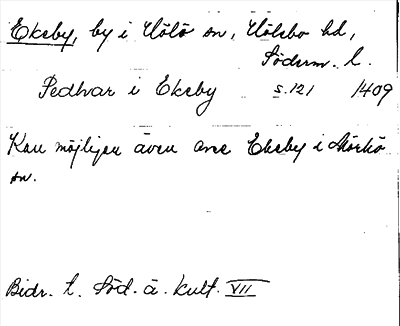 Ekeby, by i Hölö sn, Hölebo hd,
Söderm. l.
Pedhvar i Ekeby s. 121 1409
Kan möjligen även avse Ekeby i Mörkö
sn.
Bidr. t. Söd. ä. kult. VII